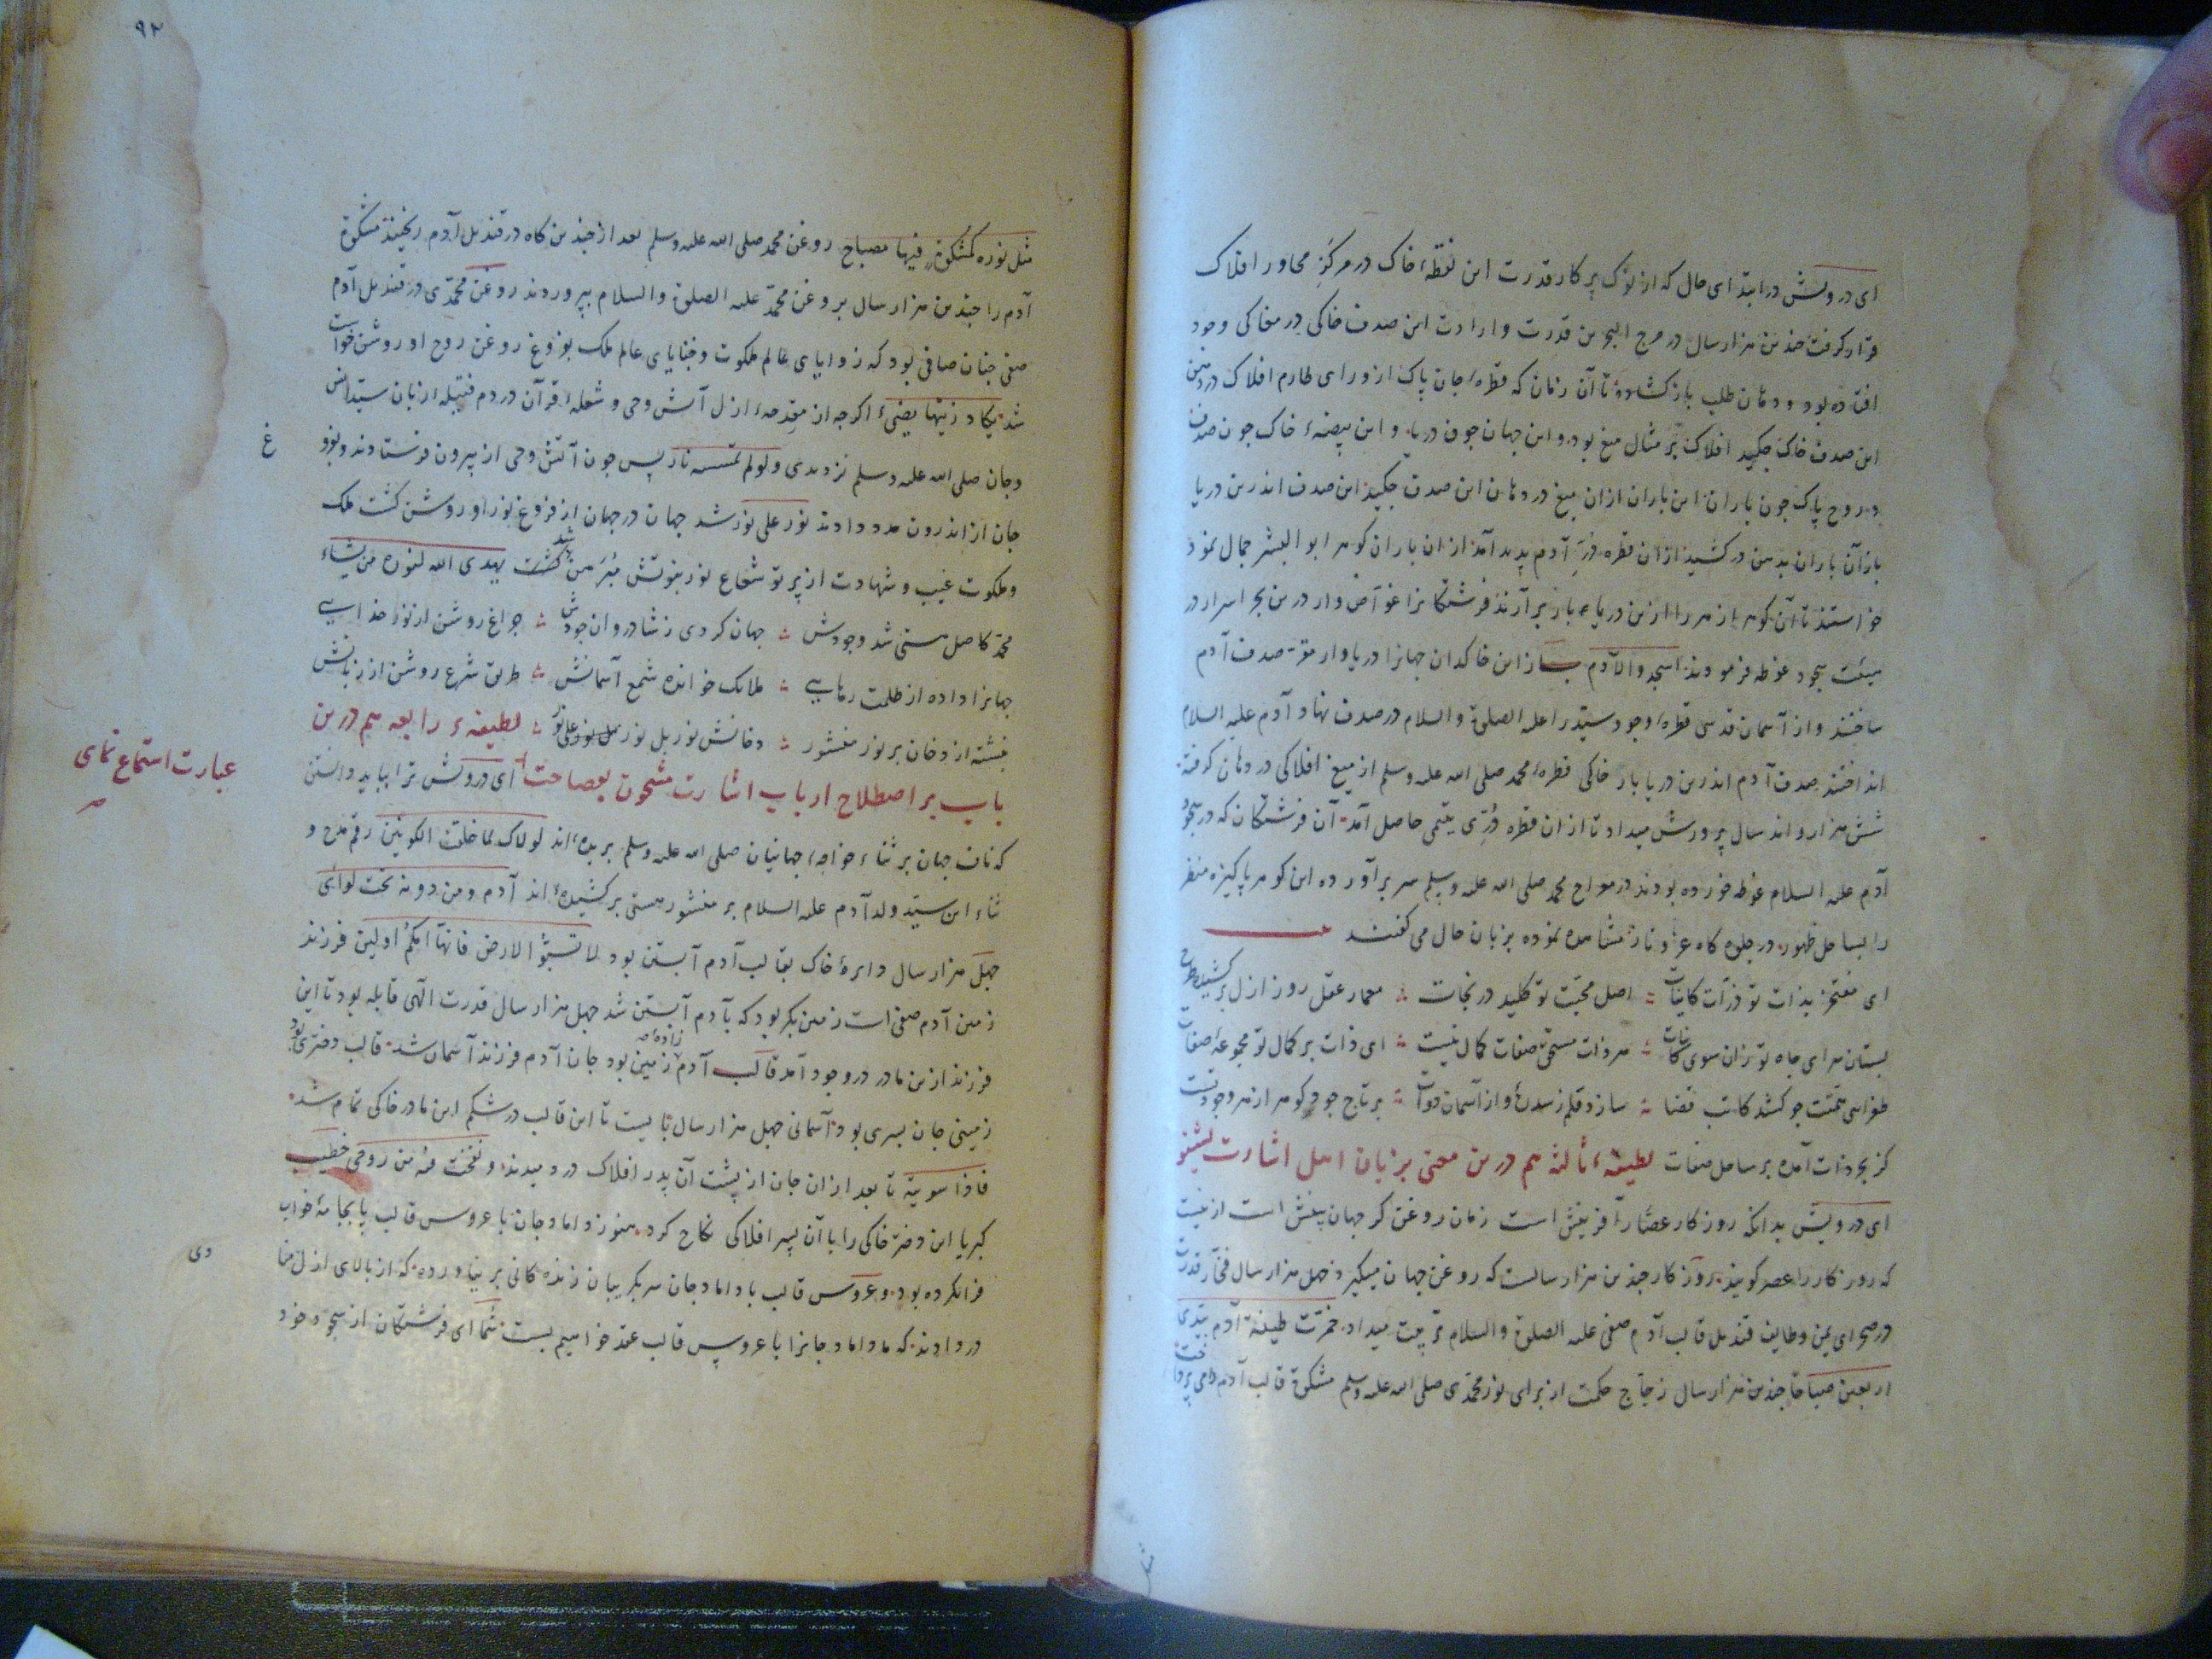 ای درویش در ابتدای حال که از نوک پرکار قدرت این نقطهٔ خاک در مرکز محاور افلاک
قرار گرفت چندین هزار سال در مرج البحرین قدرت و ارادت این صدف خاکی در مغاکی وجود
افتاده بود و دهان طلب باز گشاده تا آن زمان که قطرهٔ جان پاک از ورای طارم افلاک در دهن
این صدف خاک چکید افلاک بر مثال میغ بود و این جهان چون دریا و این بیضهٔ خاک چون صدف
و روح پاک چون باران این باران ازان میغ در دهان این صدف چکید این صدف اندرین دریا
باز آن باران بدمن درکشید ازان قطره درّ آدم پدید آمد ازان باران گوهر ابو البشر جمال نمود
خواستند تا آن گوهر از هر را ازین دریا باز برآرند فرشتگانرا غوّاص وار درین بحر اسرار در
هیئت سجود غوطه فرمودند اسجدوا لآدم باز ازین خاکدان جهانرا دریاوار صدف آدم
ساختند و از آسمان قدسی قطرهٔ وجود سیّد را علیه الصلوة والسلام در صدف نهاد آدم علیه السلام
انداختند صدف آدم اندرین دریا بار خاکی قطرهٔ محمد صلی الله علیه وسلم از میغ افلاکی در دهان گرفته
شش هزار و اند سال پرورش میداد تا ازان قطره درّی یتیمی حاصل آمد آن فرشتگان که در سجود
آدم علیه السلام غوطه خورده بودند در مواج محمد صلی الله علیه وسلم سر برآورده این گوهر پاکیزه منظر
را بساحل ظهور در جلوه گاه عزّ و ناز مشاهده نموده بزبان حال می گفتند
ای مفتخر بذات تو ذرّات کاینات اصل محبّت تو کلید در نجات معمار عقل روز ازل برکشیده طرح
بستان سرای جاه تو زان سوی کاینات هر ذات مستحق صفات کمال نیست ای ذات بر کمال تو مجموعهٔ صفات
طغرای همّتت چو کشد کاتب قضا سازد قلم ز سدره و از آسمان دوات بر تاج جود گوهر از بهر وجود تست
کز بحر ذات آمده بر ساحل صفات لطیفهٔ ثالثه هم درین معنی بزبان اهل اشارت بشنو
ای درویش بدانکه روزگار عصّار آفرینش است زمان روغن گر جهان بینش است از نیست
که روزگار را عصر گویند روزگار چندین هزار سالست که روغن جهان میگیرد چهل هزار سال فخّار قدرت
در صحرای یمن وطایف قندیل قالب آدم صفی علیه الصلوة والسلام تربیت میداد خمّرت طینة آدم بیدی
اربعین صباحا چندین هزار سال زجاج حکمت از برای نور محمدی صلی الله علیه وسلم مشکوة قالب آدم را می پرداخت
٩٢
مثل نوره کمشکوة فیها مصباح روغن محمد صلی الله علیه وسلم بعد از چندین گاه در قندیل آدم ریختند مشکوة
آدم را چندین هزار سال بروغن محمّد علیه الصلوة والسلام بپروردند روغن محمّدی در قندیل آدم
صفی چنان صافی بود که زوایای عالم ملکوت و خبایای عالم ملک بفروغ روغن روح او روشن خواست
شد یکاد زیتها یضیء اگرچه از مقدحهٔ ازل آتش وحی و شعلهٔ قرآن در دم فتیله از زبان سیّد انس
وجان صلی الله علیه وسلم نزدیدی ولو لم تمسسه نار پس چون آتش وحی از بیرون فرستادند و بفرو
غ
جان از اندرون مدد دادند نور علی نور شد جهان در جهان از فروغ نور او روشن گشت ملک
وملکوت غیب و شهادت از پرتو شعاع نور بنوّتش مبرهن شد گشت یهدی الله لنوره من یشاء
محمّد کاصل هستی شد وجودش جهان گردی ز شادروان جودش چراغ روشن از نور خدایی
جهانرا داده از ظلمت رهایی ملایک خوانده شمع آسمانش طریق شرع روشن از زبانش
نبشته از دخان بر نور منشور دخانش نور بل نور علی نور لطیفهٔ رابعه هم درین
باب بر اصطلاح ارباب اشارت مشحون بفصاحت ای درویش ترا بباید دانستن
عبارت استماع نمای
که ناف جهان بر ثناء خواجهٔ جهانیان صلی الله علیه وسلم بریده اند لولاک لما خلقت الکونین رقم مدح و
ثناء این سیّد ولد آدم علیه السلام بر منشور هستی برکشیده اند آدم ومن دونه تحت لوائی
چهل هزار سال دایرهٔ خاک بقالب آدم آبستن بود لا تسبّوا الارض فانها امکم اولین فرزند
زمین آدم صفی است زمین بکر بود که بآدم آبستن شد چهل هزار سال قدرت الهی قابله بود تا این
فرزند ازین مادر در وجود آمد قالب آدم زاده زمین بود جان آدم فرزند آسمان شد قالب دختری بود
زمینی جان پسری بود آسمانی چهل هزار سال بایست تا این قالب در شکم این مادر خاکی تمام شد
فاذا سویته تا بعد ازان جان از پشت آن پدر افلاک در دمیدند و نفخت فیه من روحی خطیب
کبریا این دختر خاکی را با آن پسر افلاکی نکاح کرد هنوز داماد جان با عروس قالب پا بجامهٔ خواب
فرا نکرده بود و عروس قالب با داماد جان سر بگریبان زنده گانی بر نیاورده که از بالای ازل ندا
دی
در دادند که ما داماد جانرا با عروس قالب عقد خواهیم بست شما ای فرشتگان از سجود خود